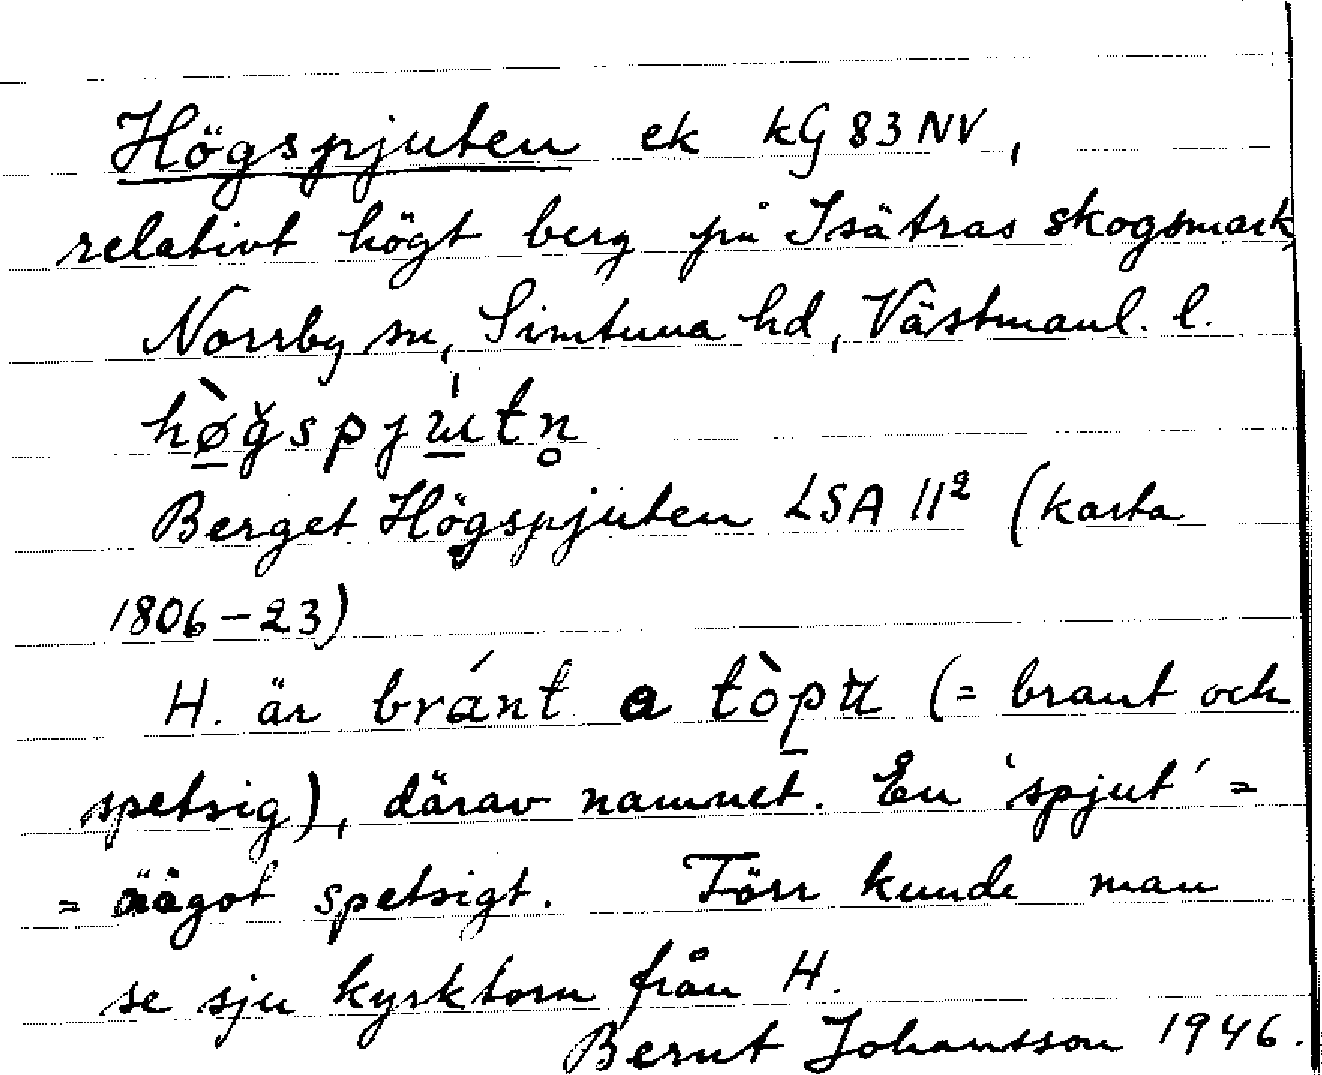 Högspjuten ek kG 83 NV,
relativt högt berg på Isätras skogsmark,
Norrby sn, Simtuna hd, Västmanl. l.
Berget Högspjuten LSA 11² (karta
1806–23)
H. är bránt a (= brant och
spetsig), därav namnet. En 'spjut' =
= något spetsigt. Förr kunde man
se sju kyrktorn från H.
Bernt Johansson 1946.